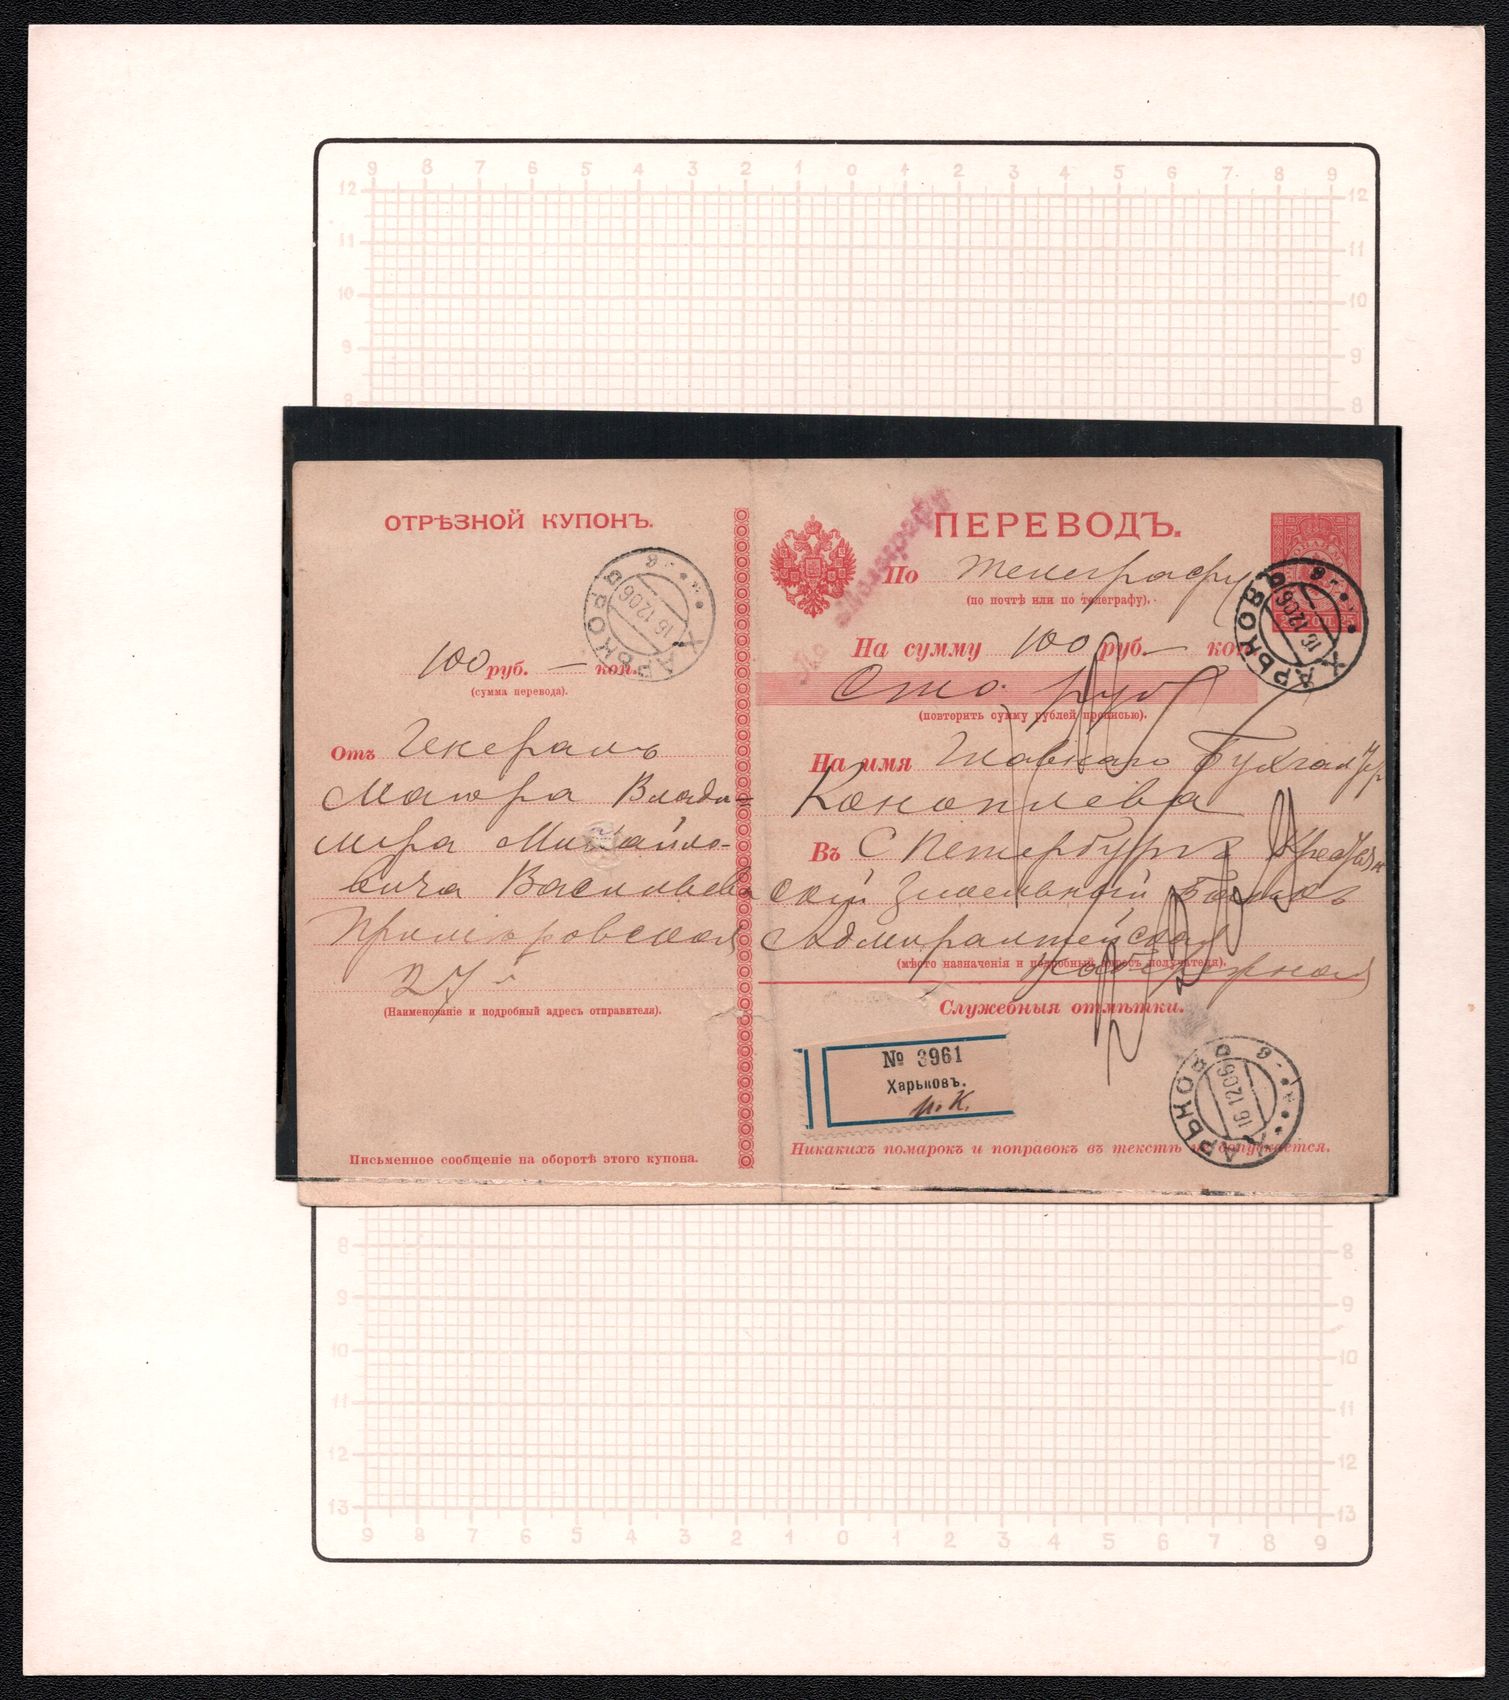 9 8 7 6 5 4 3 2 1 0 1 2 3 4 5 6 7 8 9
12 12
11 11
10 10
9 9
8 8
ОТРѢЗНОЙ КУПОНЪ.
100 руб. — коп.
(сумма перевода).
Отъ Генералъ
Маіора Влади-
мира Михайло-
вича Васильева
27
(Наименованіе и подробный адресъ отправителя).
Письменное сообщеніе на оборотѣ этого купона.
ХАРЬКОВЪ
16 12 06
По телеграфу
ПЕРЕВОДЪ.
По телеграфу
(по почтѣ или по телеграфу).
На сумму 100 руб. — коп.
Сто руб
(повторить сумму рублей прописью).
На имя Главнаго Бухгалтер
Коноплева
Въ С Петербургъ Крестьян
скій Земельный Банкъ
Адмиралтейская
набережная
(мѣсто назначенія и подробный адресъ получателя).
Служебныя отмѣтки.
№ 3961
Харьковъ.
п. К.
Никакихъ помарокъ и поправокъ въ текстѣ не допускается.
ХАРЬКОВЪ
16 12 06
ХАРЬКОВЪ
16 12 06
8 8
9 9
10 10
11 11
12 12
13 13
9 8 7 6 5 4 3 2 1 0 1 2 3 4 5 6 7 8 9